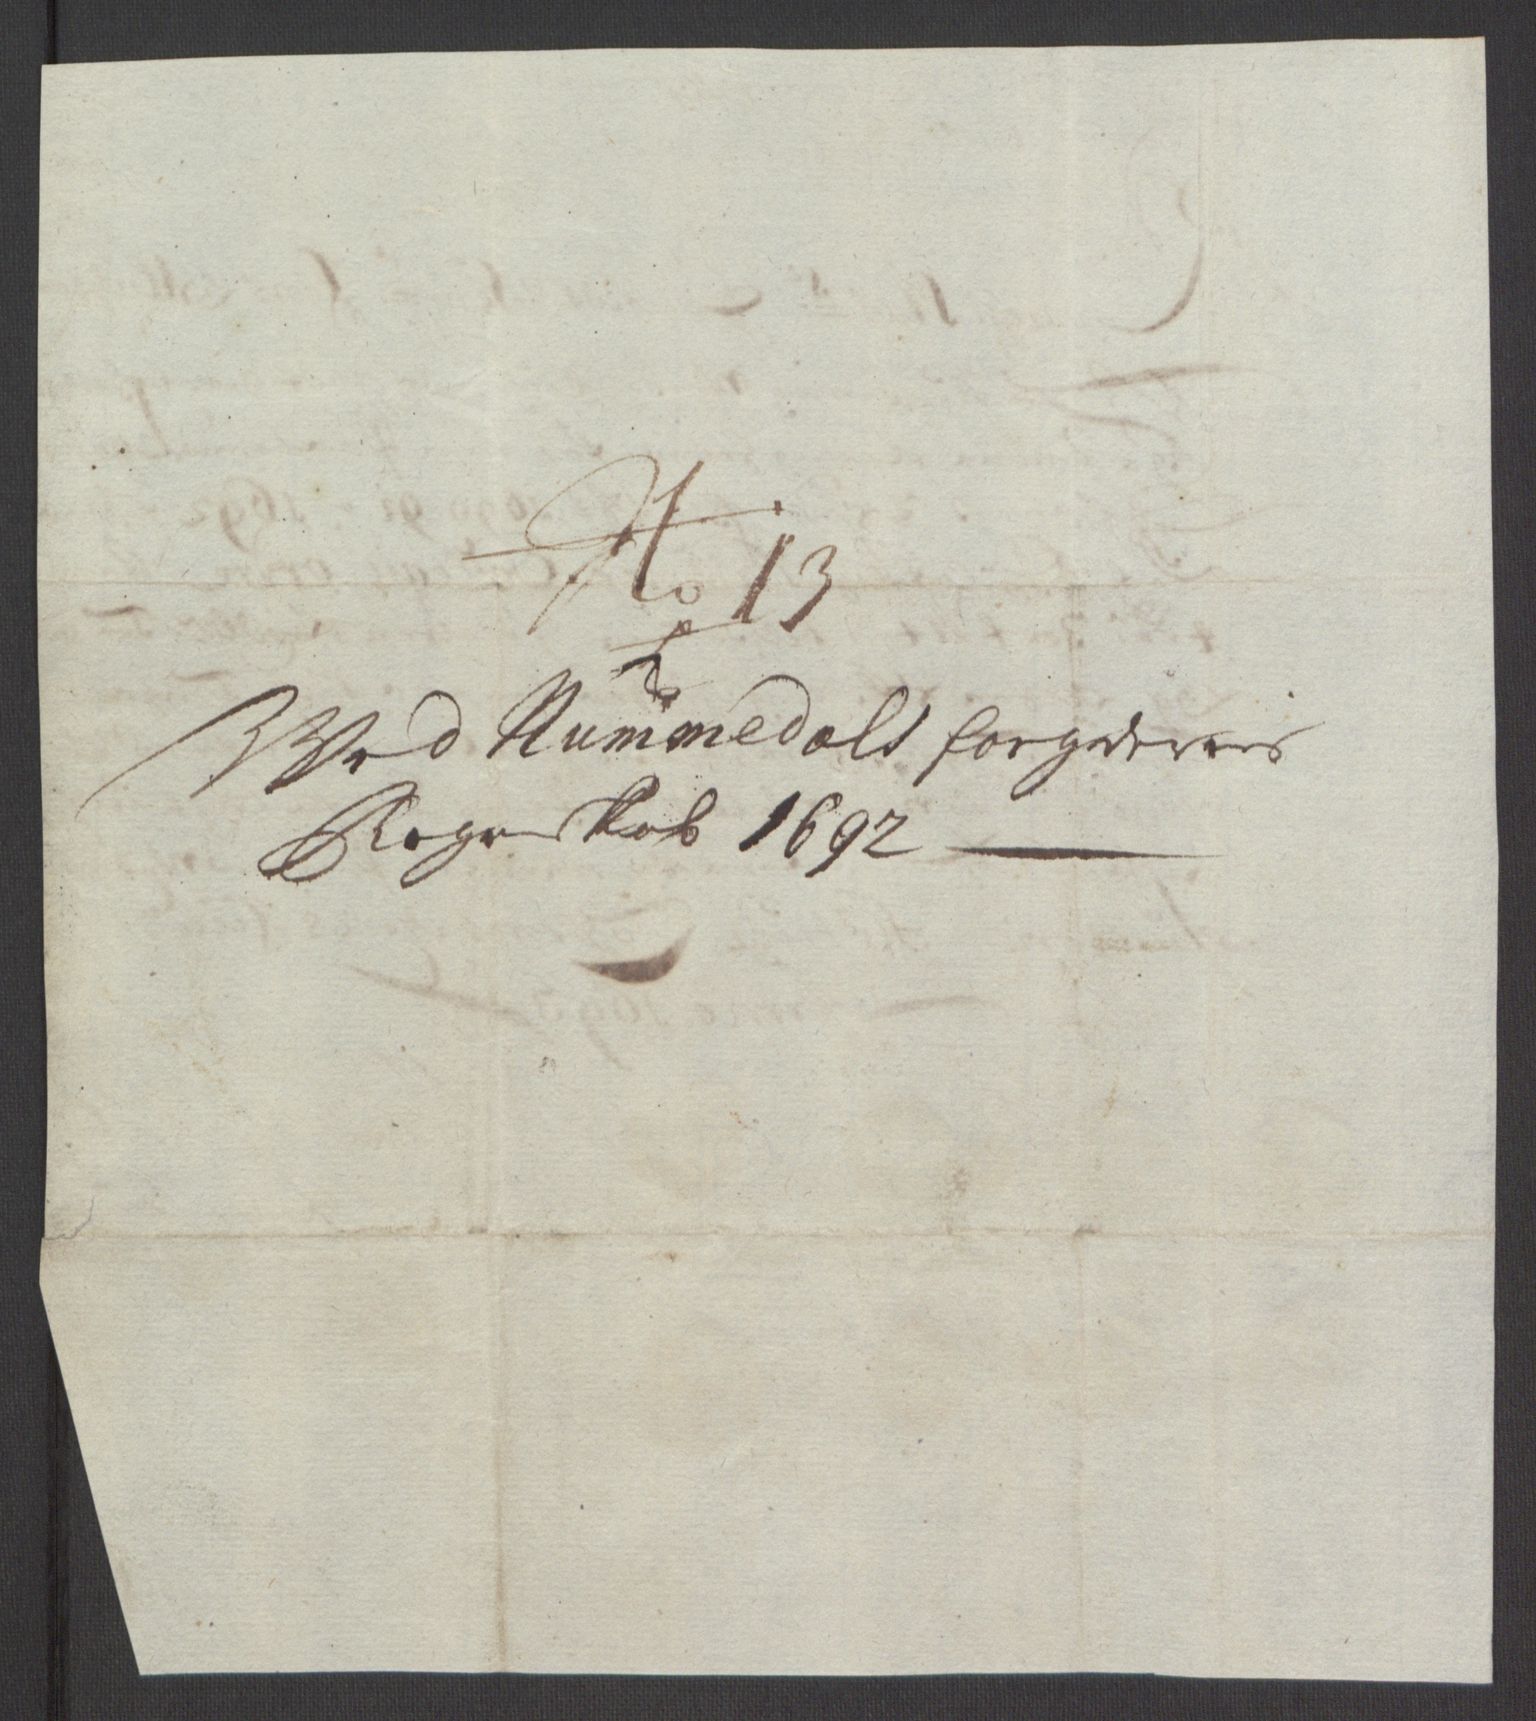 No 13
Wed Nummedals forgderies
Regenskab 1692